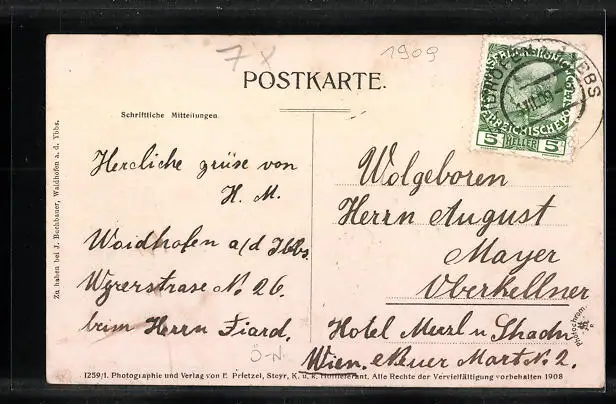 7 x
1909
POSTKARTE.
Schriftliche Mitteilungen.
Herzliche grüse von
H. M.
Waidhofen a/d Ibbs.
Wyrerstrase No. 26.
beim Herrn Fiard.
Ö-N
Wolgeboren
Herrn August
Mayer
Oberkellner
Hotel Meerl u Shadn
Wien. Neuer Markt N. 2.
5 HELLER 5
YBBS
Zu haben bei J. Buchbauer, Waidhofen a. d. Ybbs.
Photochromie
1259/1. Photographie und Verlag von E. Prietzel, Steyr, K. u. k. Hoflieferant. Alle Rechte der Vervielfältigung vorbehalten 1908